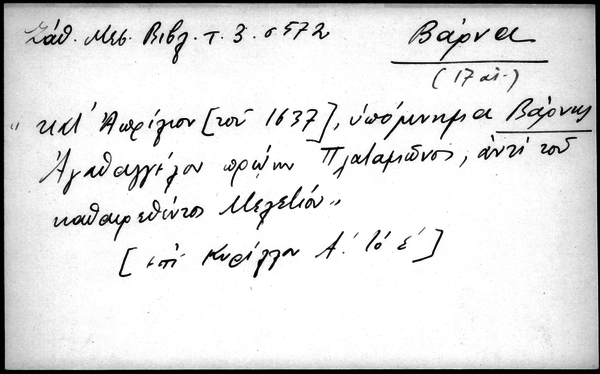 Σάθ. Μεσ. Βιβλ. τ. 3. σ 572
Βάρνα
(17 αι.)
"κατ' Ἀπρίλιον [τοῦ 1637], ὑπόμνημα Βάρνης
Ἀγαθαγγέλου πρώην Πλαταμῶνος, ἀντὶ τοῦ
καθαιρεθέντος Μελετίου"
[ἐπὶ Κυρίλλου Α'. τὸ ε']